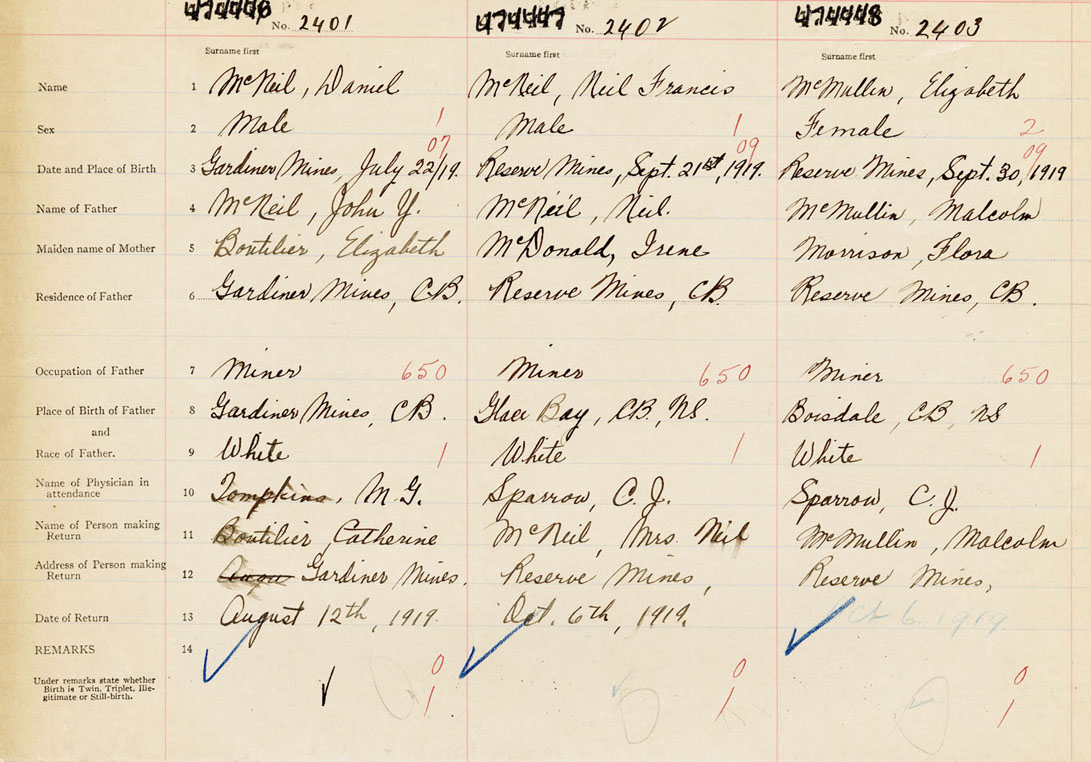 474446 No. 2401 474447 No. 2402 474448 No. 2403
Surname first Surname first Surname first
Name 1 McNeil, Daniel McNeil, Neil Francis McMullin, Elizabeth
Sex 2 Male 1 Male 1 Female 2
07 09 09
Date and Place of Birth 3 Gardiner Mines, July 22/19. Reserve Mines, Sept. 21st, 1919. Reserve Mines, Sept. 30, 1919
Name of Father 4 McNeil, John Y. McNeil, Neil. McMullin, Malcolm
Maiden name of Mother 5 Boutilier, Elizabeth McDonald, Irene Morrison, Flora
Residence of Father 6 Gardiner Mines, CB. Reserve Mines, CB. Reserve Mines, CB.
Occupation of Father 7 Miner 650 Miner 650 Miner 650
Place of Birth of Father 8 Gardiner Mines, CB. Glace Bay, CB., NS. Boisdale, CB, NS
and
Race of Father. 9 White 1 White 1 White 1
Name of Physician in
attendance 10 Tompkins, M. G. Sparrow, C. J. Sparrow, C. J.
Name of Person making
Return 11 Boutilier, Catherine McNeil, Mrs. Neil McMullin, Malcolm
Address of Person making
Return 12 Gardiner Mines. Reserve Mines, Reserve Mines,
Date of Return 13 August 12th, 1919. Oct. 6th, 1919. Oct 6 1919
REMARKS 14
0 0 0
Under remarks state whether
Birth is Twin, Triplet, Ille-
gitimate or Still-birth. 1 1 1